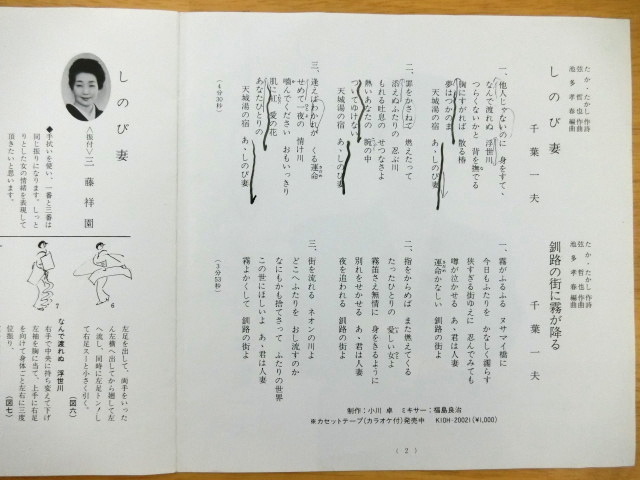 たか・たかし作詩
弦哲也作曲
池多孝春編曲
しのび妻
千葉一夫
一、他人じゃないのに 身をすて、
なんで渡れぬ 浮世川
つらくないかと 背を撫でる
胸にすがれば 散る椿
夢はつかのま
天城湯の宿 あゝしのび妻
二、罪をかさねて 燃えたって
添えぬふたりの 忍ぶ川
もれる吐息の せつなさよ
熱いあなたの 腕の中
ついてゆけない
天城湯の宿 あゝしのび妻
三、逢えばわかれが くる運命
せめて一夜の 情け川
噛んでください おもいっきり
肌に紅い 愛の花
あなたひとりの
天城湯の宿 あゝしのび妻
(4分30秒)
たか・たかし作詩
弦哲也作曲
池多孝春編曲
釧路の街に霧が降る
千葉一夫
一、霧がふるふる ヌサマイ橋に
今日もふたりを かなしく濡らす
狭すぎる街ゆえに 忍んでみても
噂が泣かせる あゝ君は人妻
運命かなしい 釧路の街よ
二、指をからめば また燃えてくる
たったひとりの 愛しい女よ
霧笛さえ無情に 身をきるように
別れをせかせる あゝ君は人妻
夜を追われる 釧路の街よ
三、街を流れる ネオンの川よ
どこへふたりを おし流すのか
なにもかも捨てさって ふたりの世界
この世にほしいよ あゝ君は人妻
霧よかくして 釧路の街よ
(3分53秒)
制作:小川 卓 ミキサー:福島良治
※カセットテープ(カラオケ付)発売中 K10H-20021(¥1,000)
(2)
しのび妻
〈振付〉三藤祥園
◆手拭いを使い、一番と三番は
同じ振りになります。しっと
りとした女の情緒を表現して
頂きたいと思います。
7
6
左足を出して、両手をいった
ん左横へ出してから廻して左
へ流し、同時に左足トンメし
て右足スーと小さく引く。
(図六)
なんで渡れぬ 浮世川
右手で中央に持ち変えて下げ
左袖を胸に当て、上手に右足
を向けて身体ごと左右に三度
位振り、
(図七)